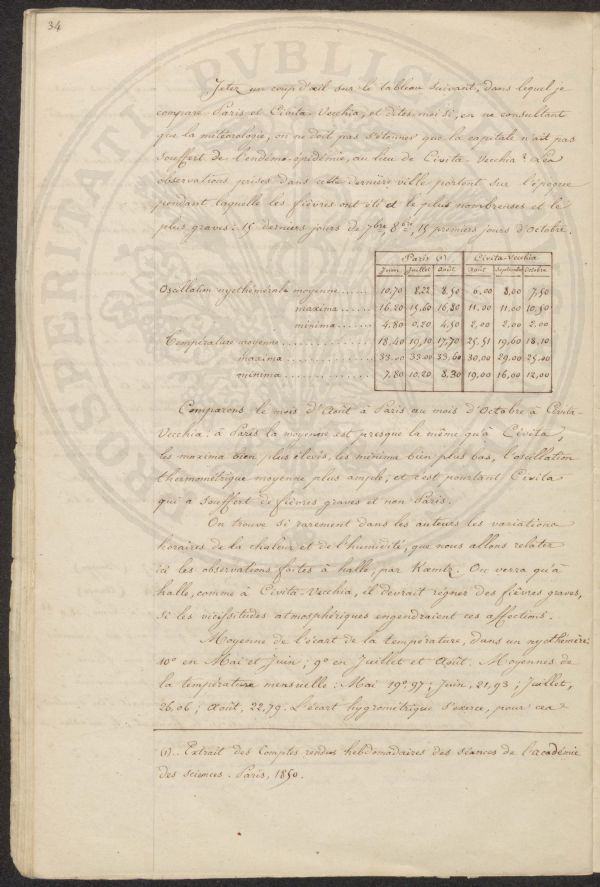 34
Jetez un coup d'œil sur le tableau suivant, dans lequel je
compare Paris et Civita-Vecchia, et dites-moi si, en ne consultant
que la météorologie, on ne doit pas s'étonner que la capitale n'ait pas
souffert de l'endémo-épidémie, au lieu de Civita-Vecchia? Les
observations prises dans cette dernière ville portent sur l'époque
pendant laquelle les fièvres ont été et le plus nombreuses et le
plus graves: 15 derniers jours de 7bre, 8bre, 15 premiers jours d'Octobre.
Paris (1) Civita-Vecchia
Juin Juillet Août Août Septembre Octobre
Oscillation nycthémérale moyenne...... 10,70 8,22 8,50 6,00 8,00 7,50
maxima...... 16,20 15,60 16,80 11,00 11,00 10,50
minima....... 4,80 0,20 4,50 2,00 2,00 2,00
Température moyenne............. 18,40 19,10 17,70 25,51 19,60 18,10
maxima.............. 33,00 33,00 33,60 30,00 29,00 25,00
minima.............. 7,80 10,20 8,30 19,00 16,00 12,00
Comparons le mois d'Août à Paris au mois d'Octobre à Civita-
Vecchia: à Paris la moyenne est presque la même qu'à Civita,
les maxima bien plus élevés, les minima bien plus bas, l'oscillation
thermométrique moyenne plus ample, et c'est pourtant Civita
qui a souffert de fièvres graves et non Paris.
On trouve si rarement dans les auteurs les variations
horaires de la chaleur et de l'humidité, que nous allons relater
ici les observations faites à halle, par Kæmtz. On verra qu'à
halle, comme à Civita-Vecchia, il devrait régner des fièvres graves,
si les vicissitudes atmosphériques engendraient ces affections.
Moyenne de l'écart de la température, dans un nycthémère:
10° en Mai et Juin; 9° en Juillet et Août. Moyennes de
la température mensuelle: Mai 19°,97; Juin, 21,93; Juillet,
26,06; Août, 22,79. L'écart hygrométrique s'exerce, pour ces
(1).. Extrait des Comptes rendus hebdomadaires des séances de l'académie
des sciences. Paris, 1850.
PROSPERITATI PVBLICAE